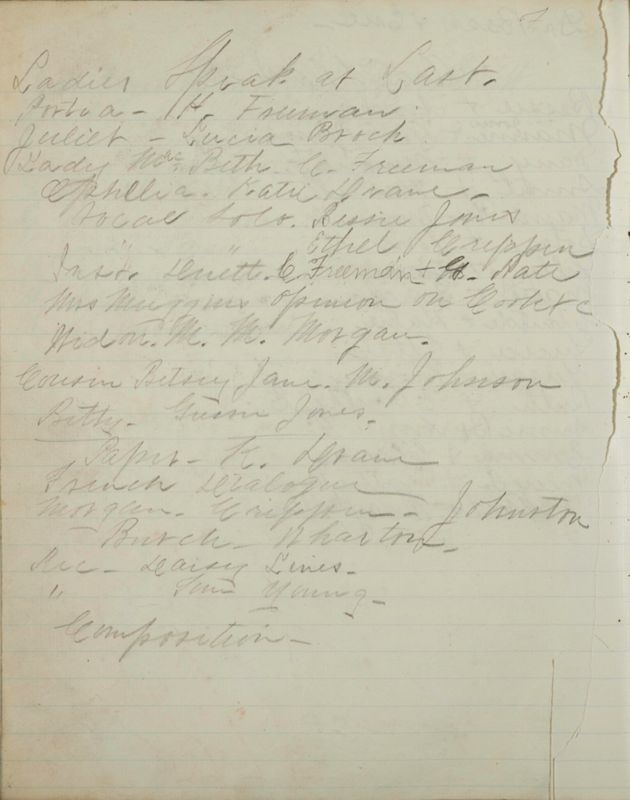 7
Ladies Speak at Last.
Portia - H. Freeman.
Juliet - Lucia Broch
Lady Mac Beth. C. Freeman
Ophelia. Katie Drane -
Vocal Solo. Bessie Jones
" " Ethel Crippen
Inst. Duett. C Freeman + Kate
Mrs Muggins opinion on
Widow. M. M. Morgan.
Cousin Betsey Jane. M. Johnson
Betty. Jones.
Paper - K. Drane
French Dialogue
Morgan. Crippen - Johnston
Burch - Wharton -
Rec - Daisy Lines -
" Young -
Composition -